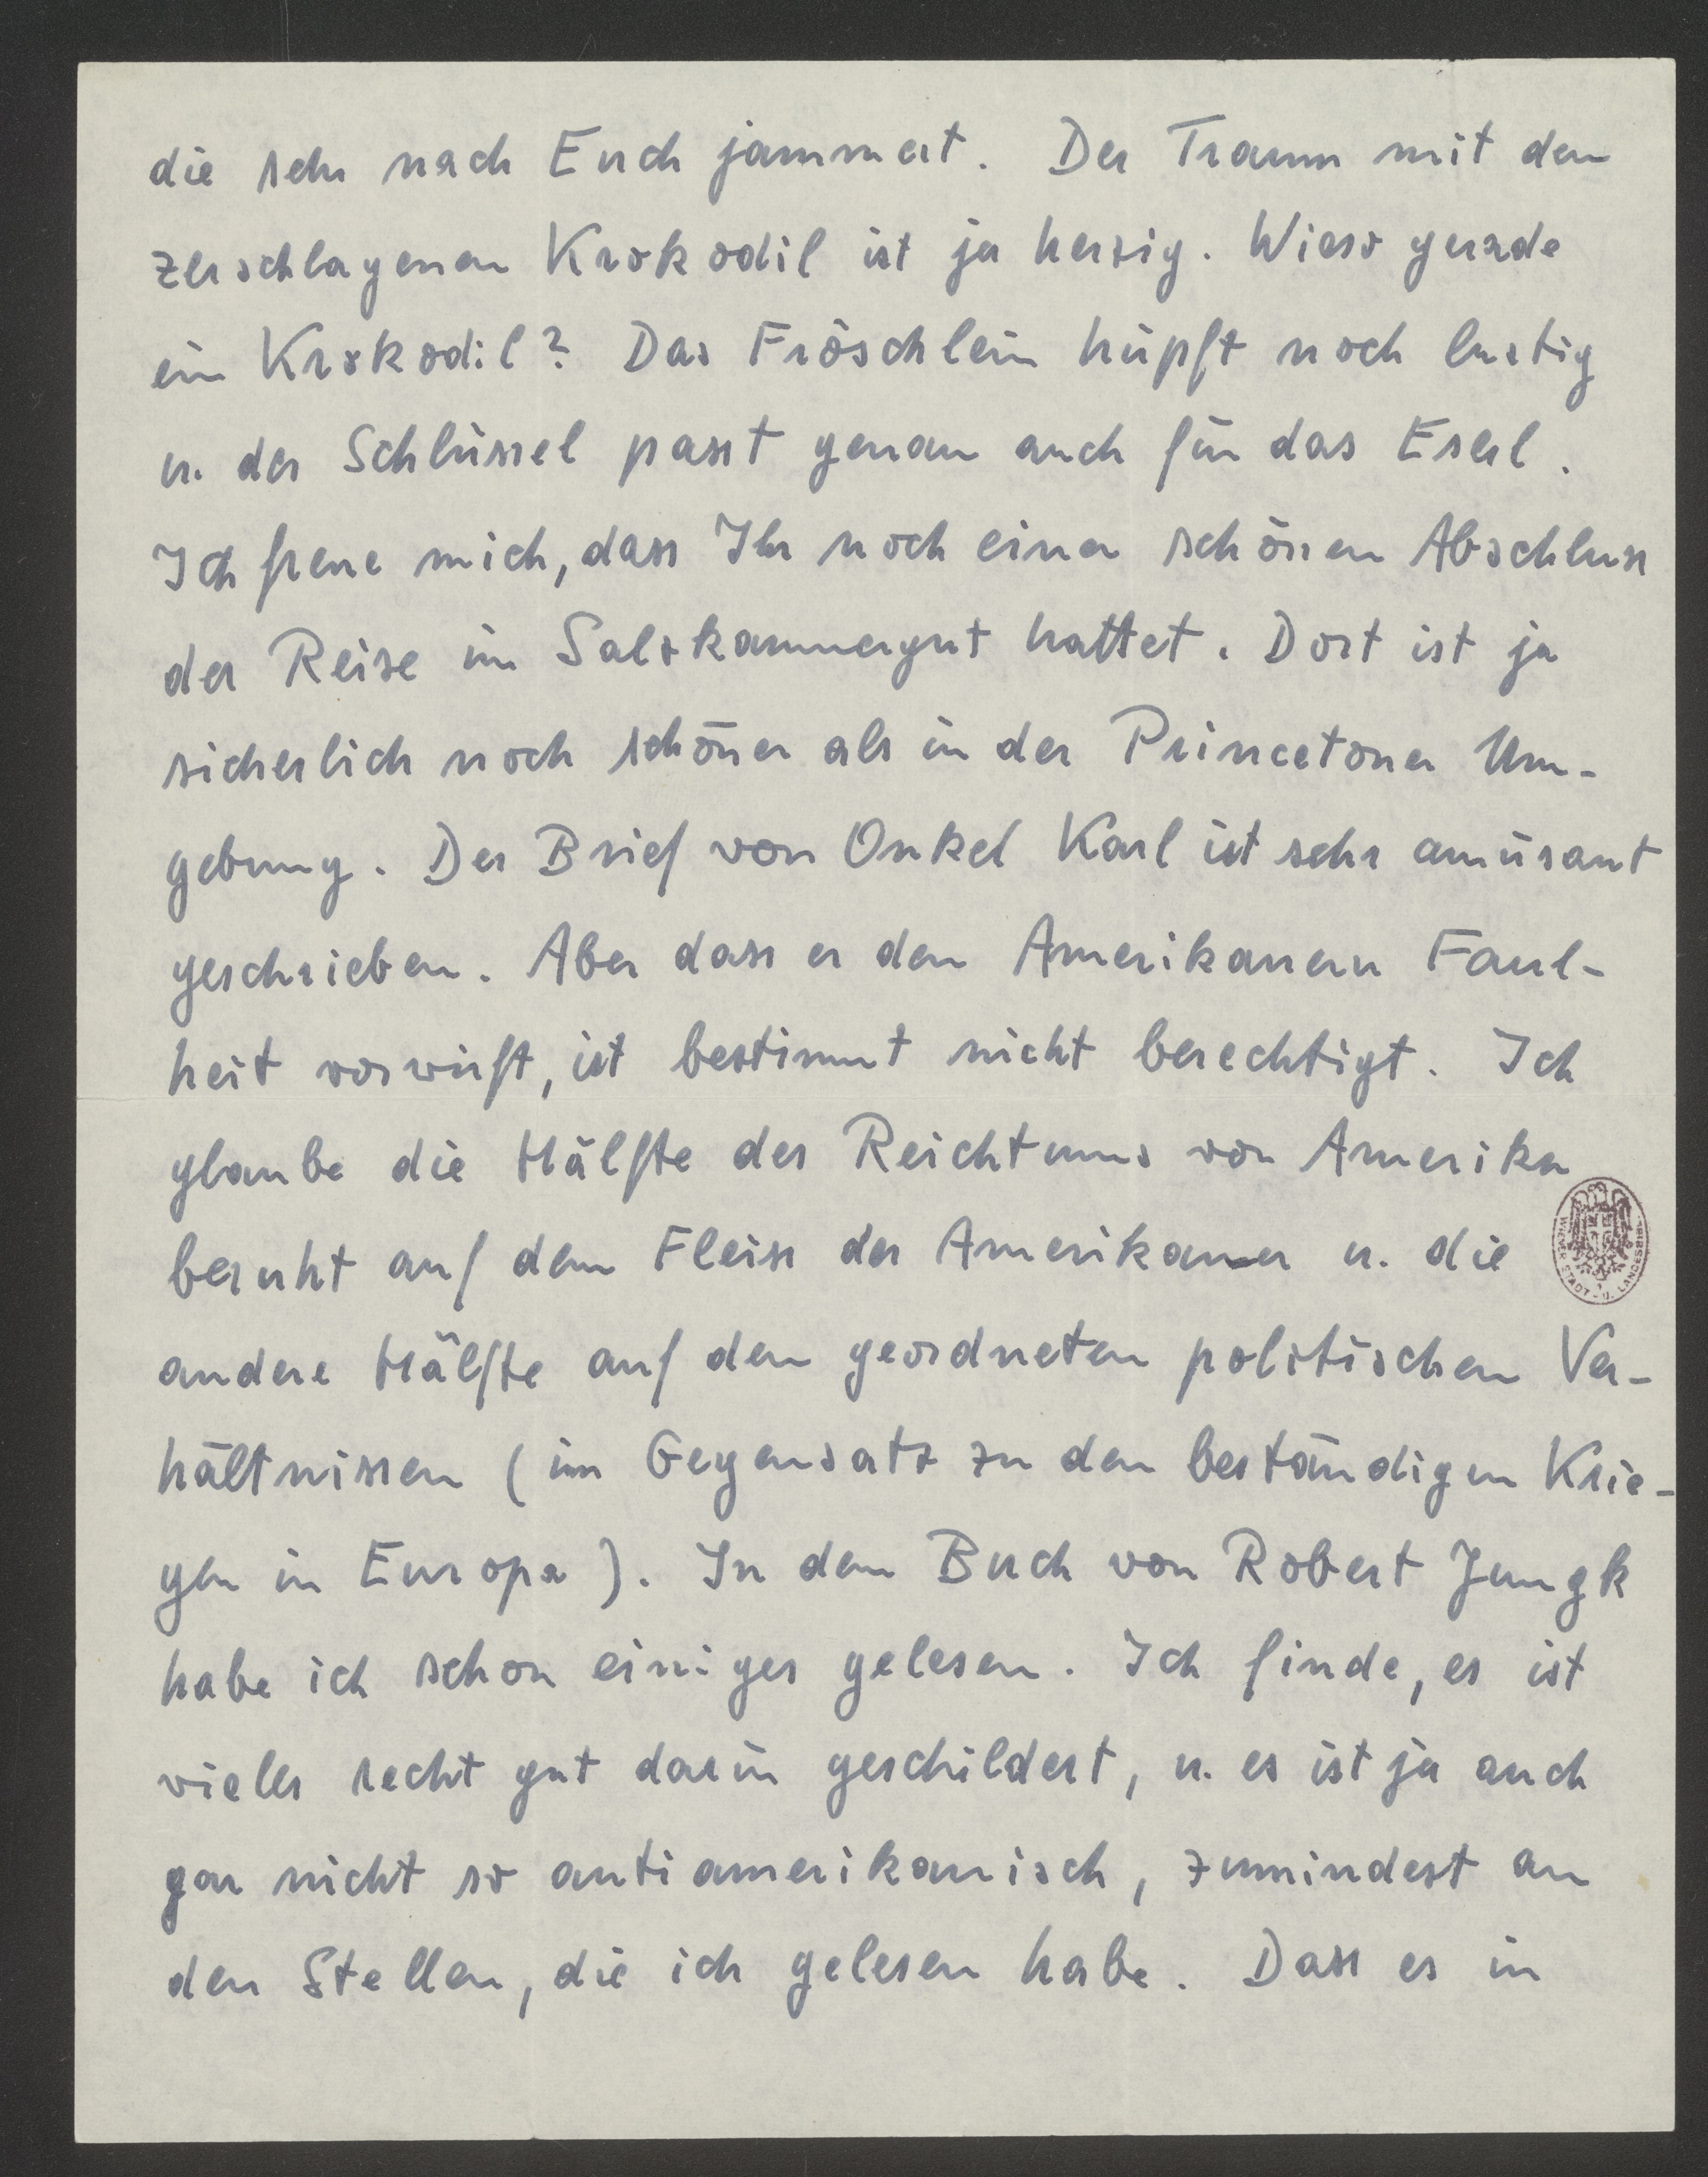 die sehr nach Euch jammert. Der Traum mit dem
zerschlagenen Krokodil ist ja herzig. Wieso gerade
ein Krokodil? Das Fröschlein hüpft noch lustig
u. der Schlüssel passt genau auch für das Eserl.
Ich freue mich, dass Ihr noch einen schönen Abschluss
der Reise im Salzkammergut hattet. Dort ist ja
sicherlich noch schöner als in der Princetoner Um-
gebung. Der Brief von Onkel Karl ist sehr amüsant
geschrieben. Aber dass er den Amerikanern Faul-
heit vorwirft, ist bestimmt nicht berechtigt. Ich
glaube die Hälfte des Reichtums von Amerika
beruht auf dem Fleiss der Amerikaner u. die
andere Hälfte auf den geordneten politischen Ver-
hältnissen (im Gegensatz zu den beständigen Krie-
gen in Europa). In dem Buch von Robert Jungk
habe ich schon einiges gelesen. Ich finde, es ist
vieles recht gut darin geschildert, u. es ist ja auch
gar nicht so antiamerikanisch, zumindest an
den Stellen, die ich gelesen habe. Dass es in
WIENER STADT- U. LANDESBIBL.